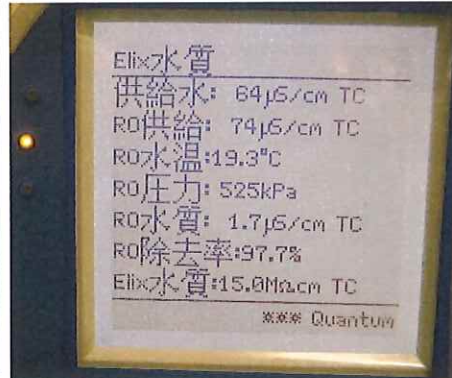 Elix水質
供給水: 64µS/cm TC
RO供給: 74µS/cm TC
RO水温:19.3°C
RO圧力: 525kPa
RO水質: 1.7µS/cm TC
RO除去率:97.7%
Elix水質:15.0MΩcm TC
※※※ Quantum